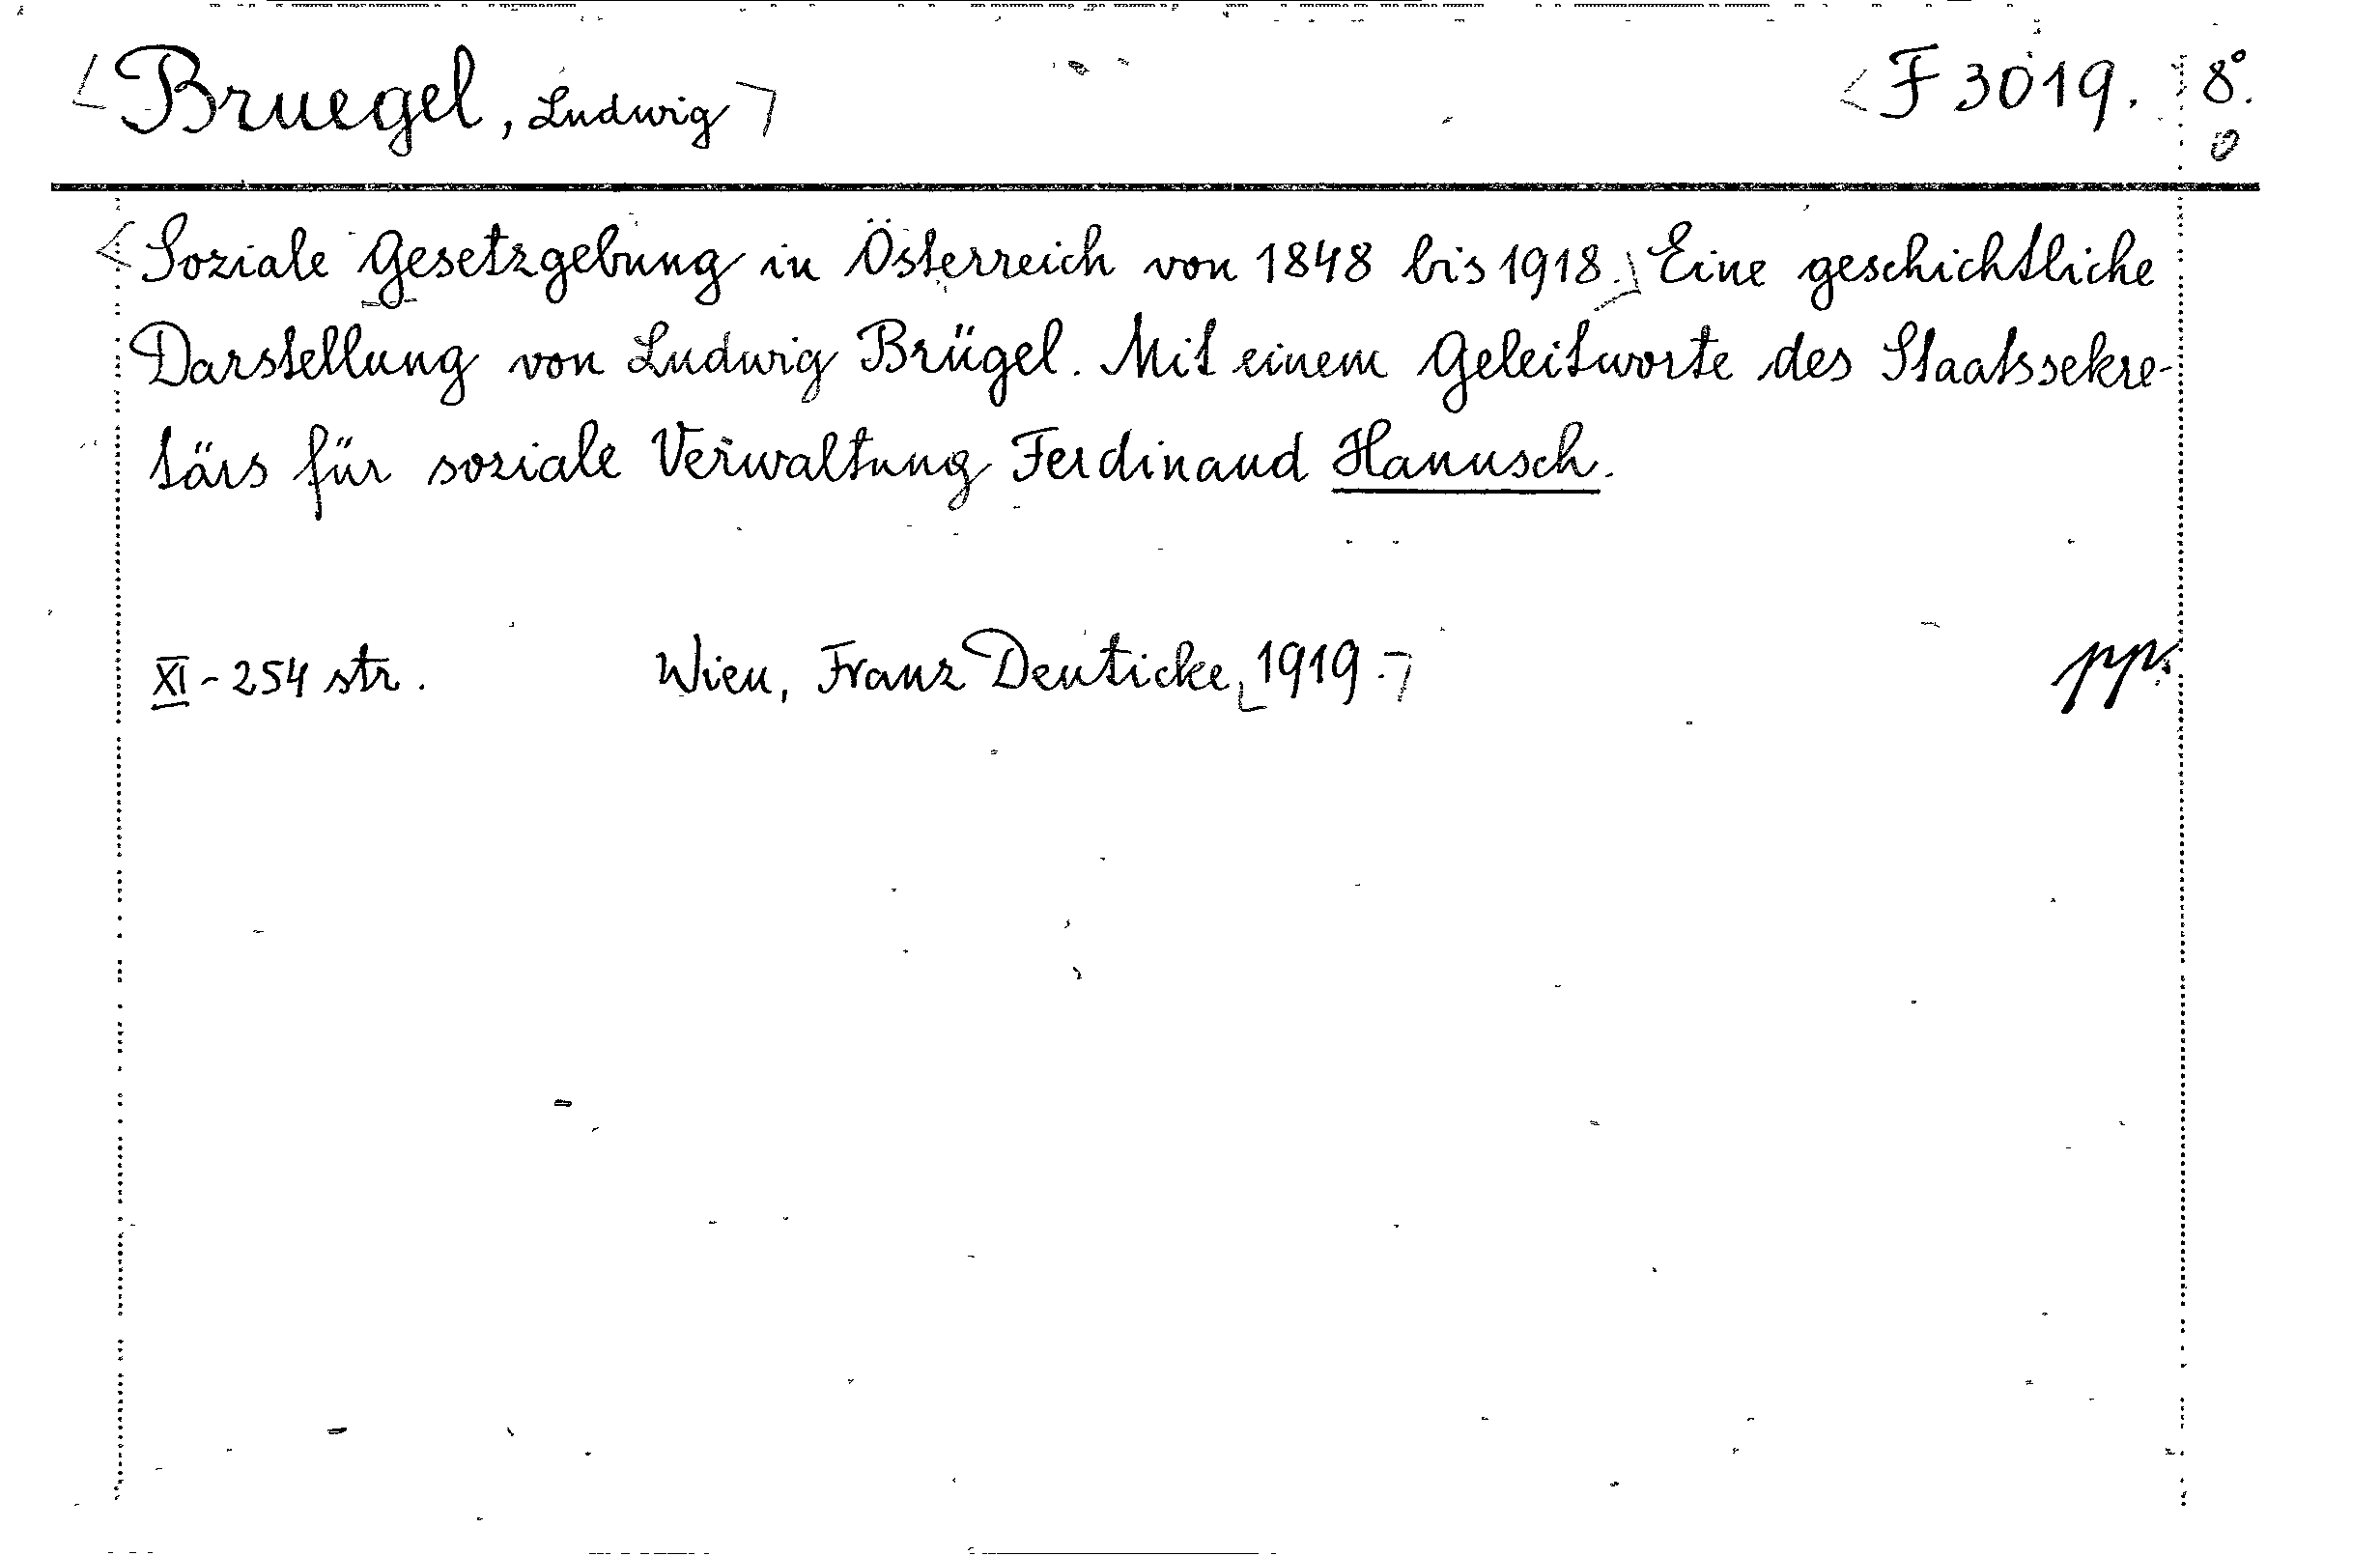 Bruegel, Ludwig F 3019. 8°.
Soziale Gesetzgebung in Österreich von 1848 bis 1918. Eine geschichtliche
Darstellung von Ludwig Brügel. Mit einem Geleitworte des Staatssekre-
tärs für soziale Verwaltung Ferdinand Hanusch.
XI-254 str. Wien, Franz Deuticke, 1919. pp.